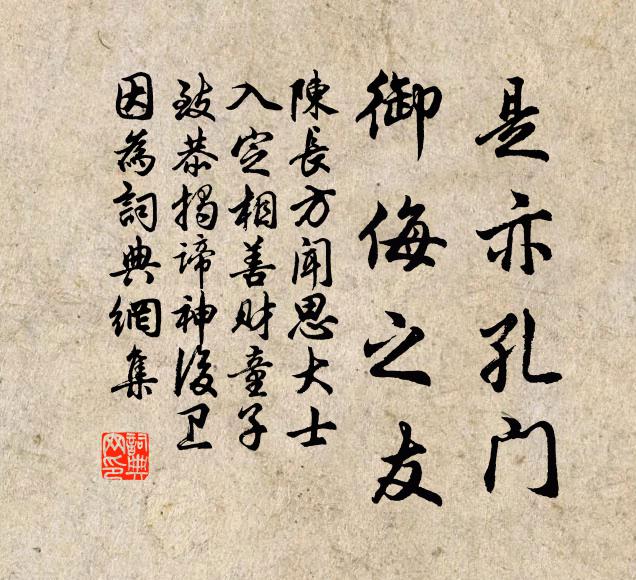 是亦孔门
御侮之友
陳長方闻思大士
入定相善财童子
致恭揭諦神後卫
因為詞典網集
詞典
网印